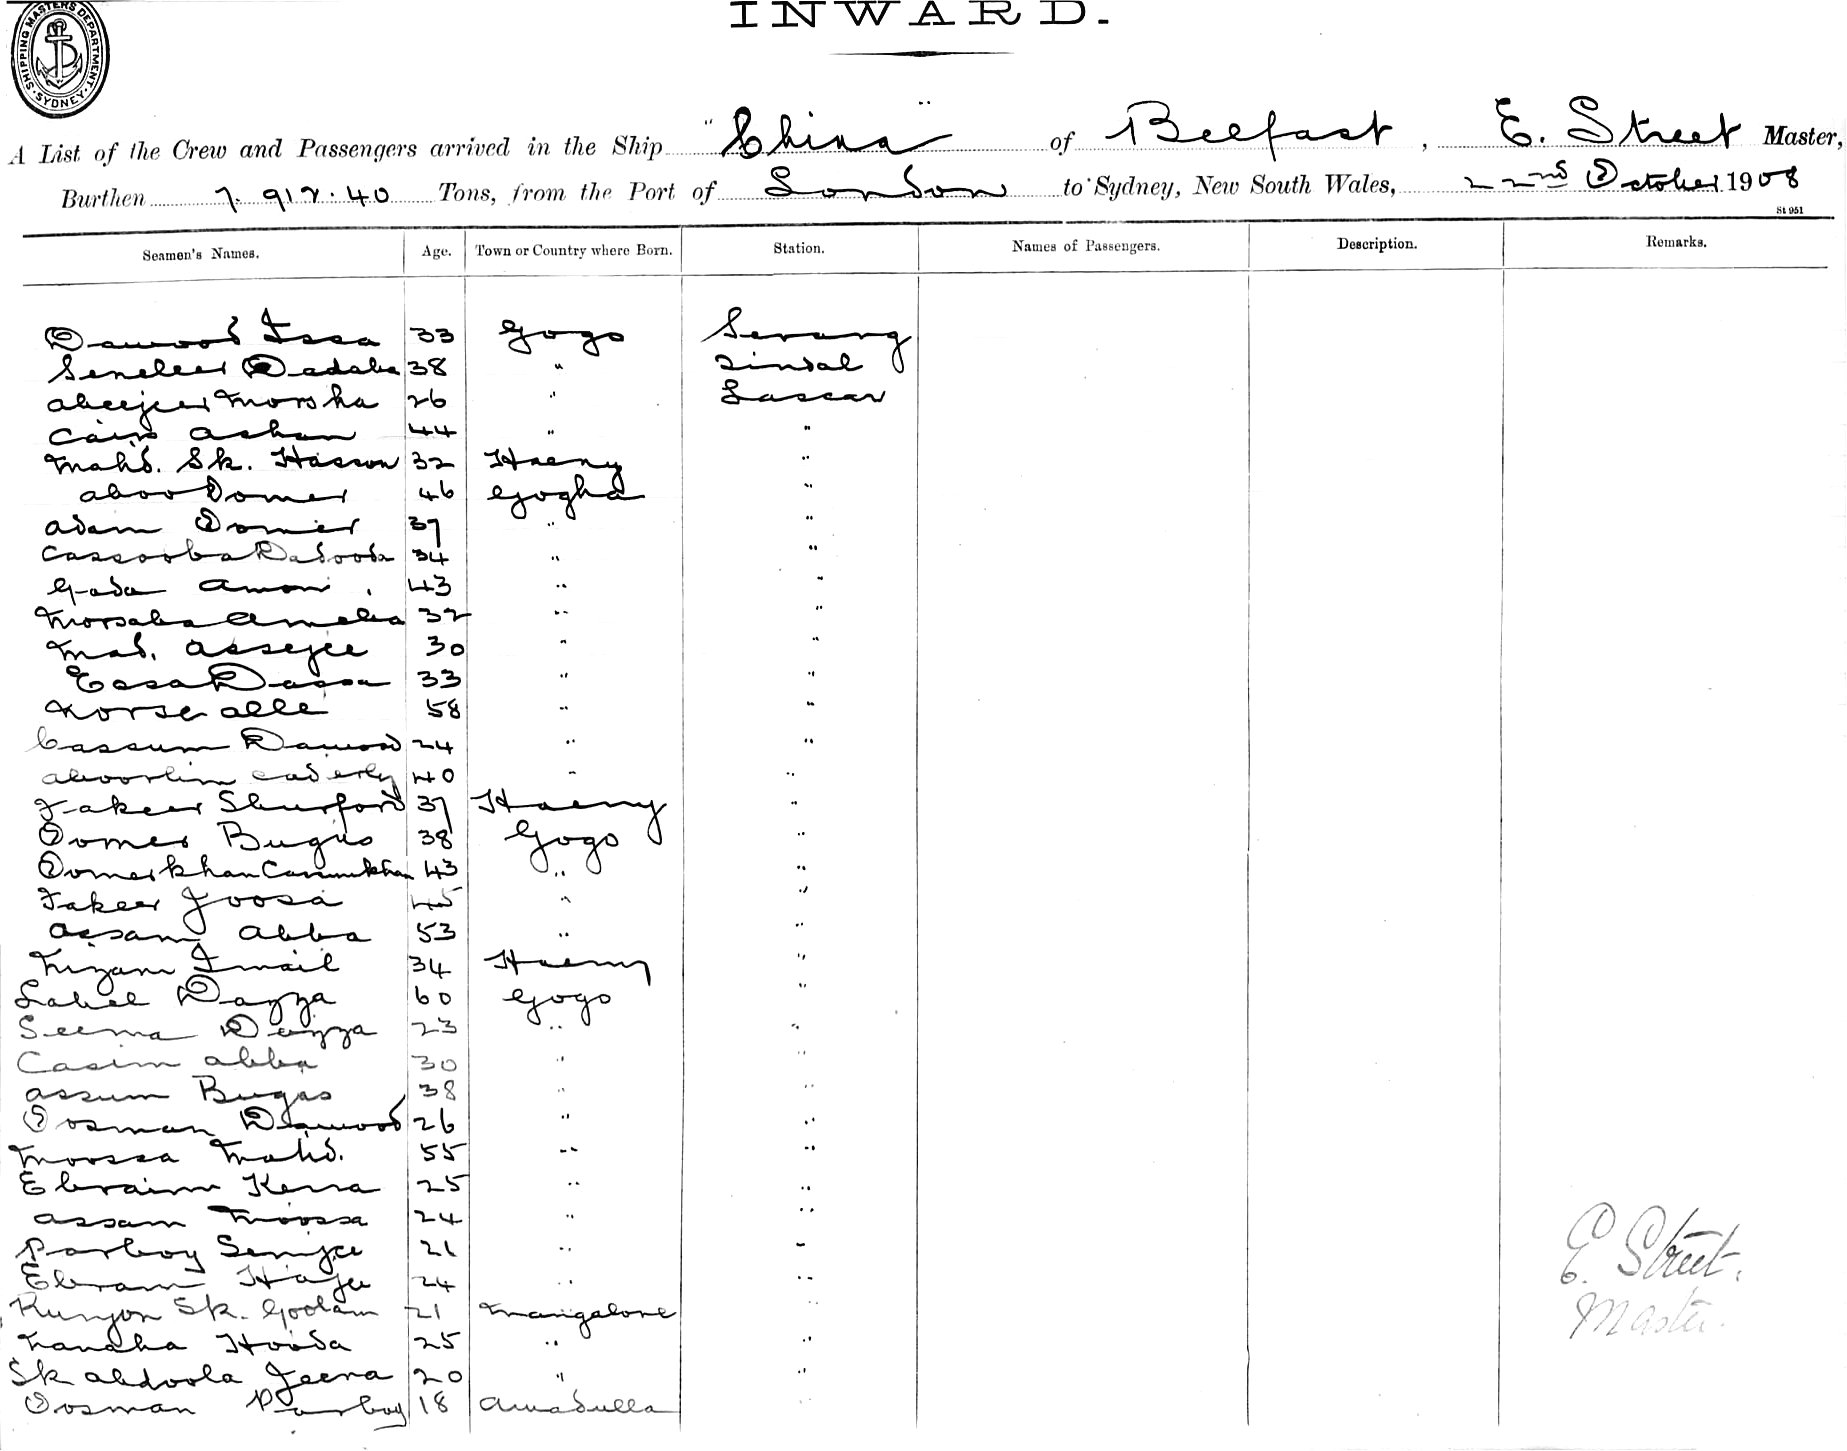 INWARD.
SHIPPING MASTERS DEPARTMENT SYDNEY
A List of the Crew and Passengers arrived in the Ship "China" of Belfast, E. Street Master,
Burthen 7.912.40 Tons, from the Port of London to Sydney, New South Wales, 22nd October 1908
St 951
Seamen's Names. Age. Town or Country where Born. Station. Names of Passengers. Description. Remarks.
Dawood Issa 33 Gogo Serang
Dadaba 38 " Tindal
Morsha 26 " Lascar
44 " "
Mahd. Sk. Hasson 32 "
Aboo Oomer 46 Gogha "
Adam Oomer 37 " "
Cassooba Dadooda 34 " "
Gada Amon 43 " "
Morsaba Ameba 32 " "
Mad. Assejee 30 " "
Eosa Dassa 33 " "
Morse Alle 58 " "
Cassum Dawood 24 " "
40 " "
Fakeer 37 "
Oomer Bugus 38 Gogo "
Oomerkhan Cassumkhan 43 " "
Fakeer Joosa 45 " "
Assam Abba 53 " "
Nizam Ismail 34 "
Dazza 60 Gogo "
Seema Dazza 23 " "
Casim Abba 30 " "
Assum Bugas 38 " "
Oosman Dawood 26 " "
Moossa Mahd. 55 " "
Ebraim 25 " "
Assam Moossa 24 " "
Parboy 21 " "
Ebram Hajee 24 " "
Runjon Sk. Goolam 21 Mangalore "
Hooda 25 " "
Sk Abdoola Jeena 20 " "
Oosman Parboy 18 Amadulla "
E. Street.
Master.